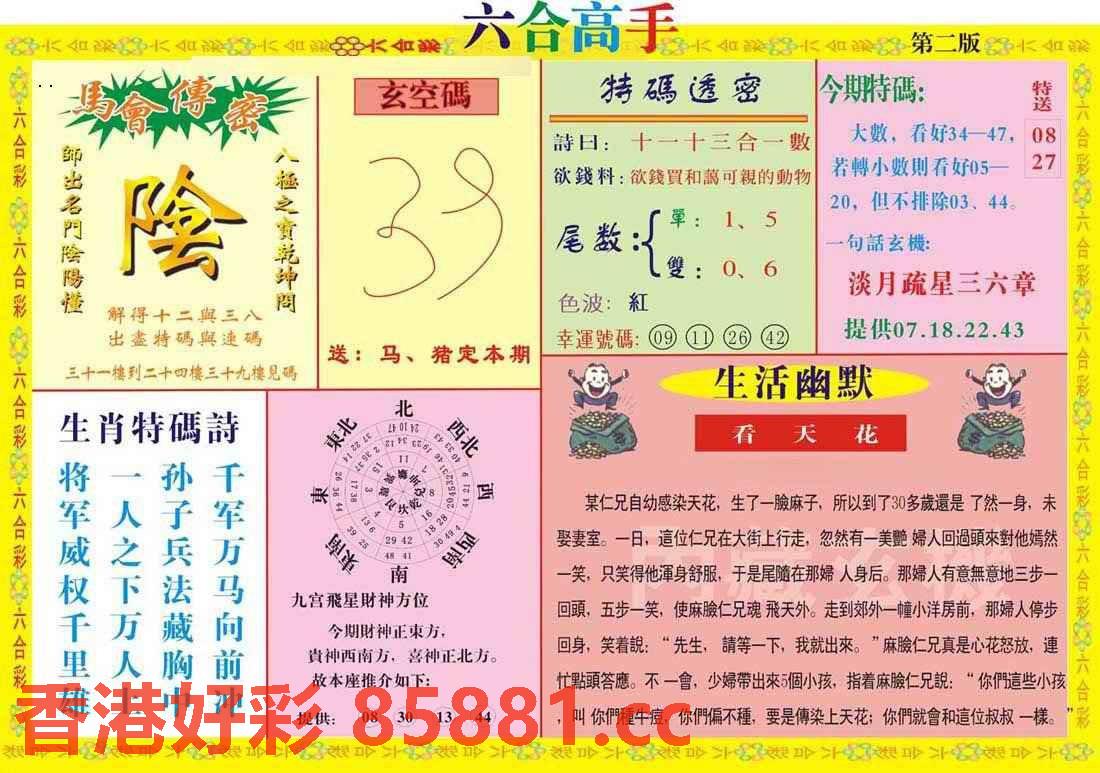 六合高手
第二版
馬會傳密
八極之寶乾坤問
陰
師出名門陰陽懂
解得十二與三八
出盡特碼與連碼
三十一樓到二十四樓三十九樓見碼
玄空碼
送：马、猪定本期
特碼透密
詩曰：十一十三合一數
欲錢料：欲錢買和藹可親的動物
尾数：
單：1、5
雙：0、6
色波：紅
幸運號碼：09 11 26 42
今期特碼：
大數，看好34—47，
若轉小數則看好05—
20，但不排除03、44。
一句話玄機：
淡月疏星三六章
提供07.18.22.43
特送
08
27
生肖特碼詩
千军万马向前冲
孙子兵法藏胸中
一人之下万人上
将军威权千里雄
北
西北
西
西南
南
東南
東
東北
九宫飛星財神方位
今期財神正東方，
貴神西南方，喜神正北方。
故本座推介如下：
提供：08 30 13 44
生活幽默
看天花
某仁兄自幼感染天花，生了一臉麻子，所以到了30多歲還是 了然一身，未
娶妻室。一日，這位仁兄在大街上行走，忽然有一美艷 婦人回過頭來對他嫣然
一笑，只笑得他渾身舒服，于是尾隨在那婦 人身后。那婦人有意無意地三步一
回頭，五步一笑，使麻臉仁兄魂 飛天外。走到郊外一幢小洋房前，那婦人停步
回身，笑着說：“先生，請等一下，我就出來。”麻臉仁兄真是心花怒放，連
忙點頭答應。不 一會，少婦帶出來5個小孩，指着麻臉仁兄說：“你們這些小孩
，叫 你們種牛痘，你們偏不種，要是傳染上天花；你們就會和這位叔叔 一樣。”
香港好彩 85881.cc